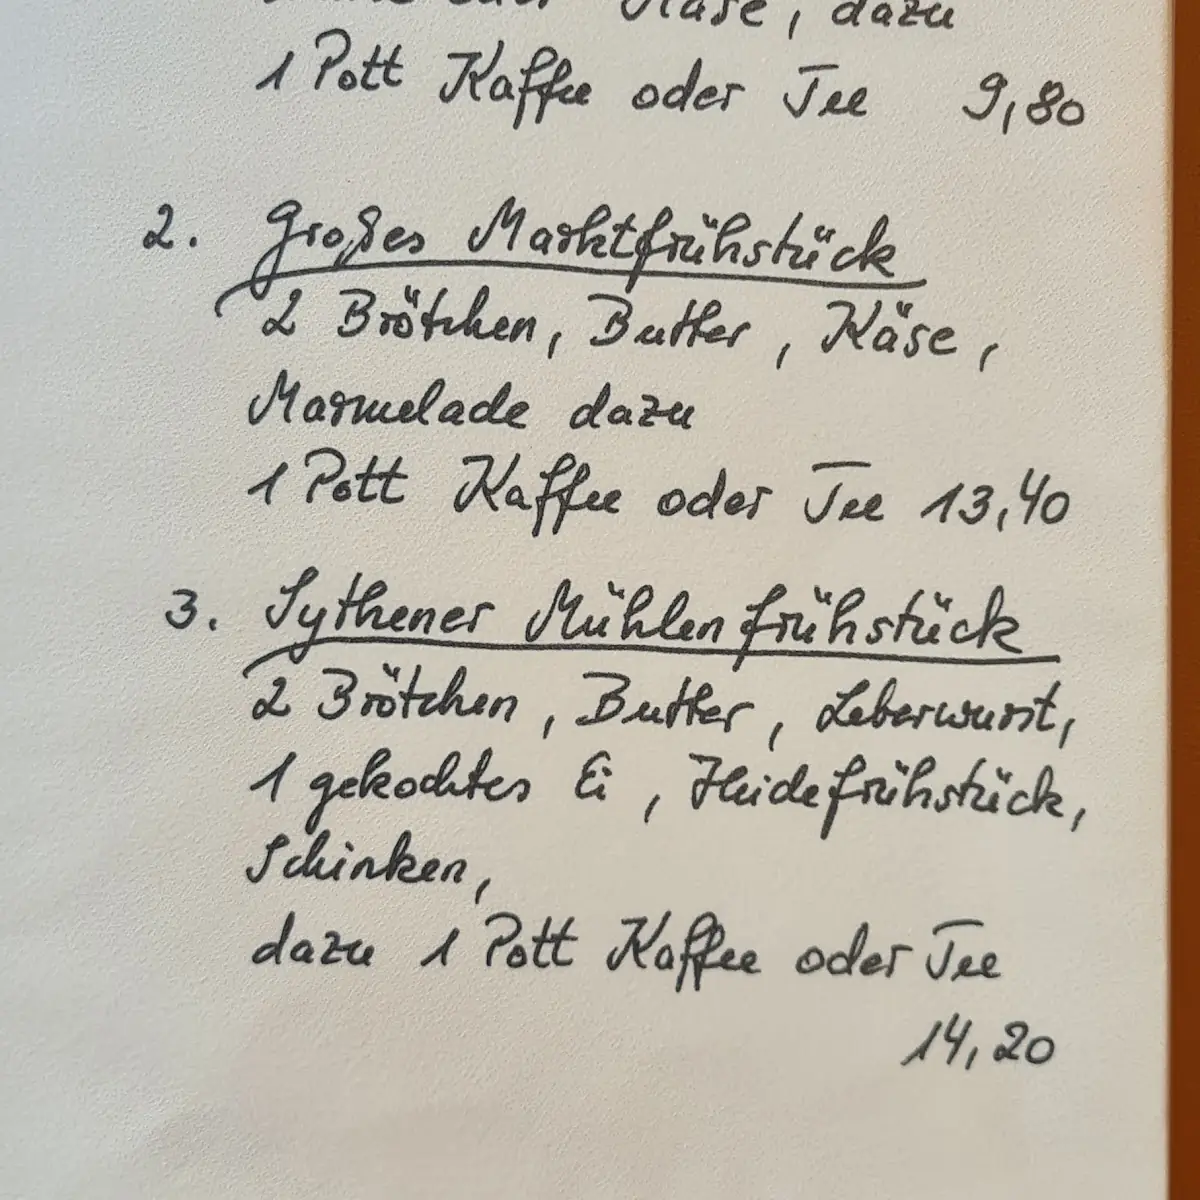 oder Käse, dazu
1 Pott Kaffee oder Tee 9,80
2. Großes Marktfrühstück
2 Brötchen, Butter, Käse,
Marmelade dazu
1 Pott Kaffee oder Tee 13,40
3. Sythener Mühlenfrühstück
2 Brötchen, Butter, Leberwurst,
1 gekochtes Ei, Heidefrühstück,
Schinken,
dazu 1 Pott Kaffee oder Tee
14,20